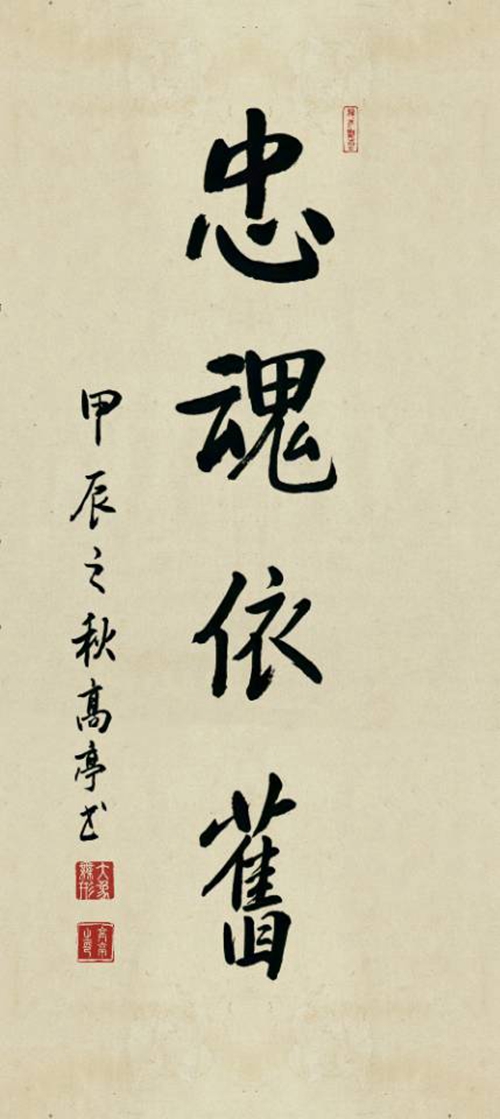 忠魂依舊
甲辰之秋高亭书
大象無形